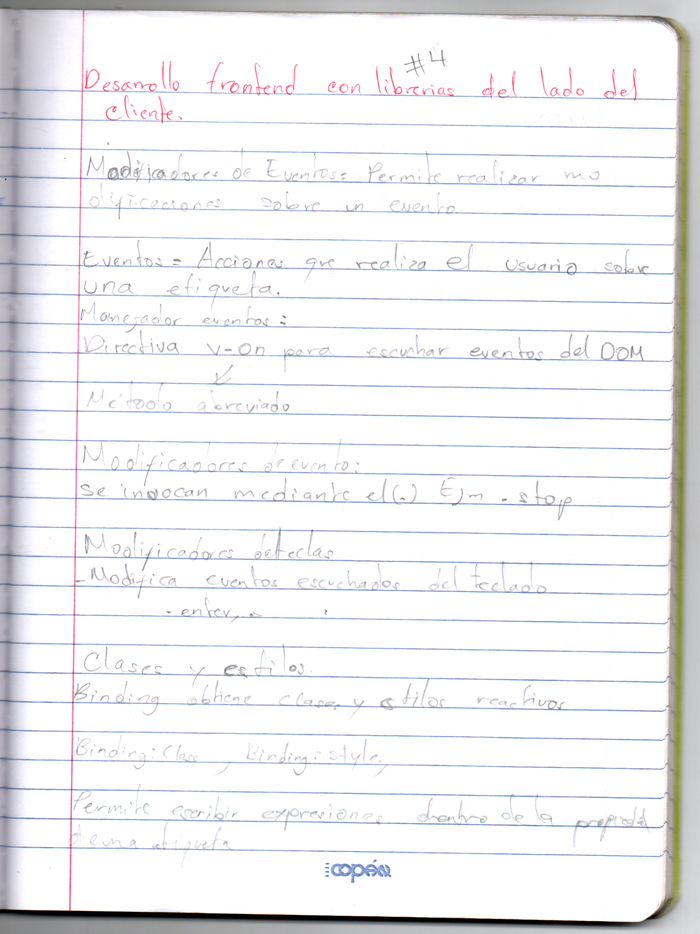 #4
Desarrollo frontend con librerias del lado del
cliente.
Modificadores de Eventos= Permite realizar mo
dificaciones sobre un evento
Eventos = Acciones que realiza el usuario sobre
una etiqueta.
Manejador eventos =
Directiva v-on para escuchar eventos del DOM
Método abreviado
Modificadores de evento:
se invocan mediante el (.) Ejm .stop
Modificadores de teclas
-Modifica eventos escuchados del teclado
- enter,
Clases y estilos.
Binding obtiene clases y estilos reactivos
Binding:Class, Binding:style,
Permite escribir expresiones dentro de la propiedad
de una etiqueta
copán